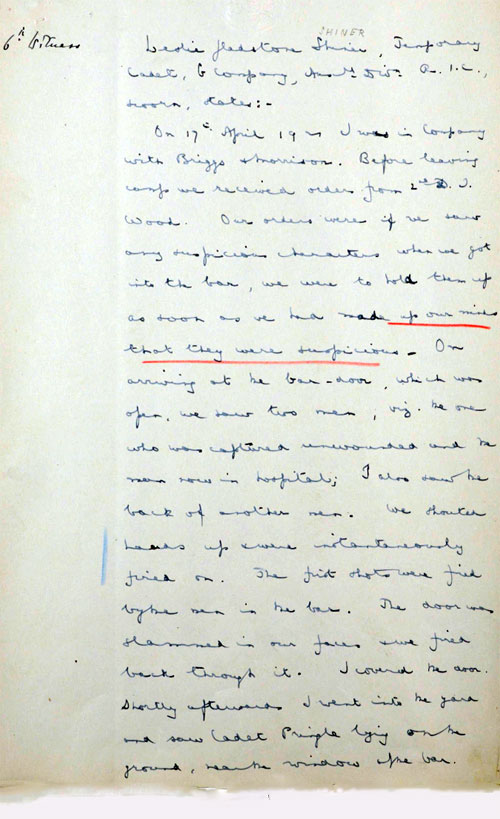 SHINER
6th Witness
Leslie Gladstone Shiner, Temporary
Cadet, G Company, Aux. Divn. R.I.C.,
sworn, states:-
On 17th April 1921 I was in Company
with Briggs & Morrison. Before leaving
camp we received orders from 2nd D.I.
Wood. Our orders were if we saw
any suspicious characters when we got
into the bar, we were to hold them up
as soon as we had made up our minds
that they were suspicious. On
arriving at the bar-door, which was
open, we saw two men, viz. the one
who was captured unwounded and the
man now in hospital; I also saw the
back of another man. We shouted
hands up & were instantaneously
fired on. The first shots were fired
by the men in the bar. The door was
slammed in our faces & we fired
back through it. I covered the door.
Shortly afterwards I went into the yard
and saw Cadet Pringle lying on the
ground, near the window of the bar.